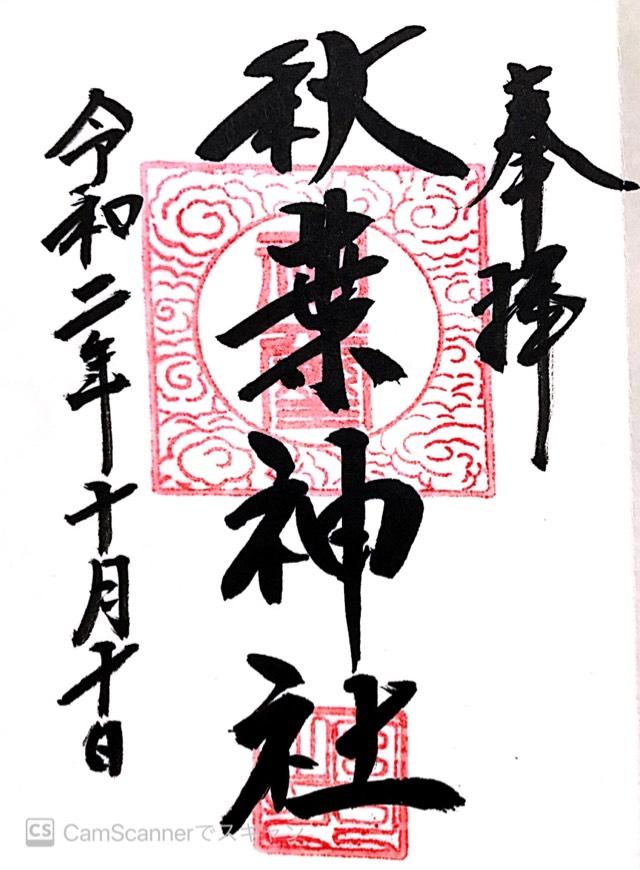 奉拝
秋葉神社
令和二年十月十日
CS CamScannerでスキャン